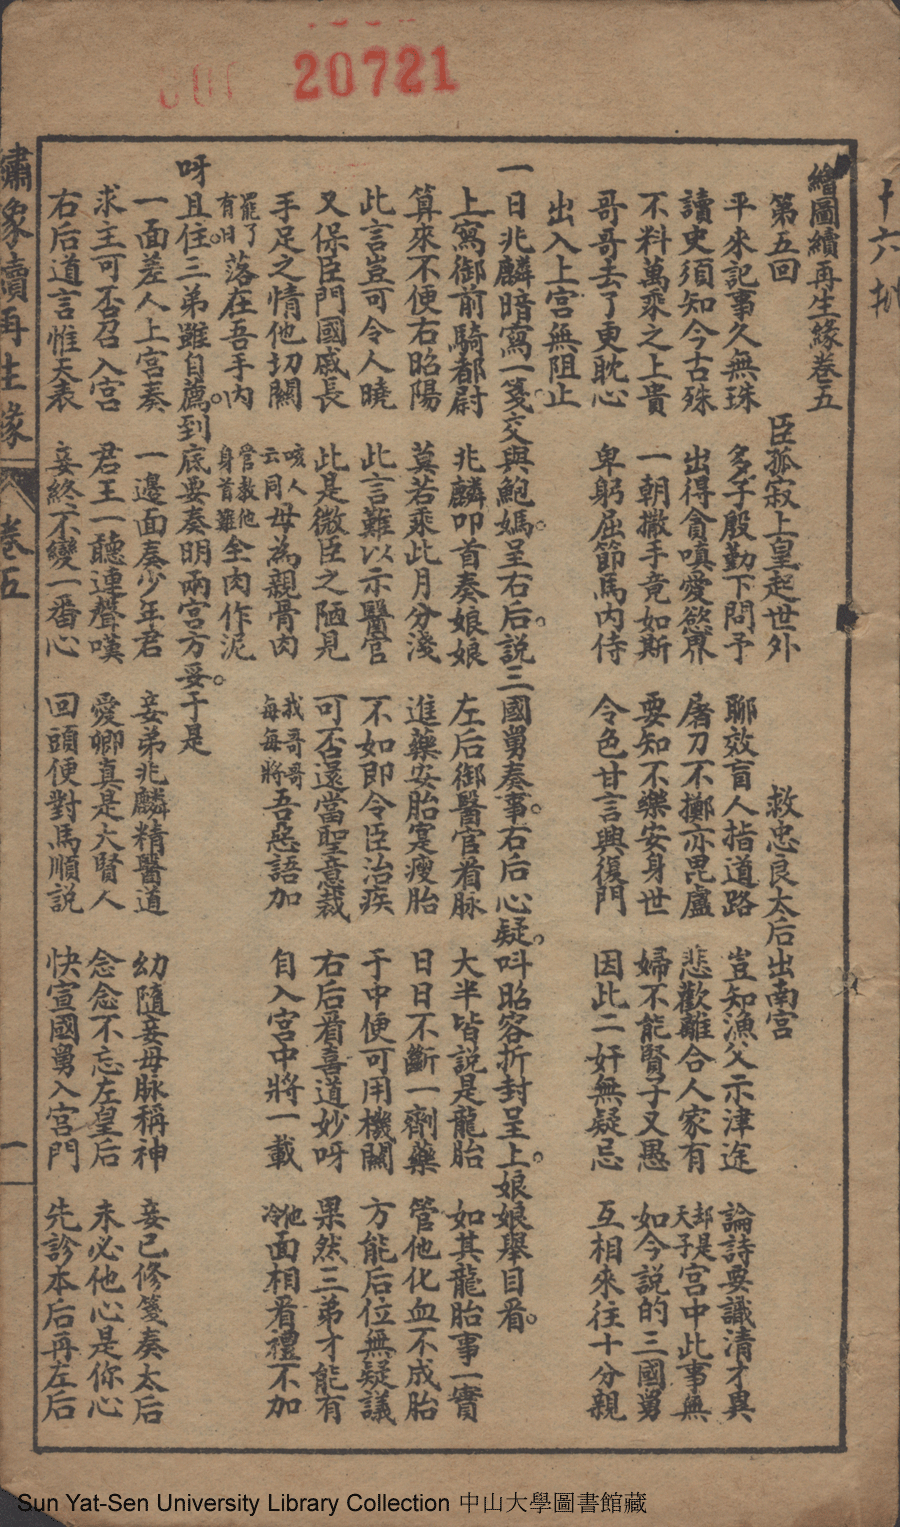 20721
十六批
繪圖續再生緣卷五
第五回 臣孤寂上皇起世外 救忠良太后出南宮
平來記事久無珠 多予殷勤下問予 聊效盲人指道路 豈知漁父示津途 論詩要識清才異
讀史須知今古殊 出得貪嗔愛慾界 屠刀不擲亦毘盧 悲歡離合人家有 却是天子宮中此事無
不料萬乘之上貴 一朝撇手竟如斯 要知不樂安身世 婦不能賢子又愚 如今說的三國舅
哥哥去了更耽心 卑躬屈節馬內侍 令色甘言興復門 因此二奸無疑忌 互相來往十分親
出入上宮無阻止
一日兆麟暗寫一箋交與鮑媽。呈右后。說三國舅奏事。右后心疑。呌昭容折封呈上。娘娘舉目看。
上寫御前騎都尉 兆麟叩首奏娘娘 左后御醫官看脉 大半皆說是龍胎 如其龍胎事一實
算來不便右昭陽 莫若乘此月分淺 進藥安胎寔瘦胎 日日不斷一劑藥 管他化血不成胎
此言豈可令人曉 此言難以示醫官 不如即令臣治疾 于中便可用機關 方能后位無疑議
又保臣門國戚長 此是微臣之陋見 可否還當聖意裁 右后看喜道妙呀 果然三弟才能有
手足之情他切關 咳人云同母為親骨肉 我哥哥每每將吾惡語加 自入宮中將一載 他冷面相看禮不加
罷了有日落在吾手內 管教他身首難全肉作泥
呀且住。三弟雖自薦。到底要奏明兩宮方妥。于是
一面差人上宮奏 一邊面奏少年君 妾弟兆麟精醫道 幼隨妾母脉稱神 妾已修箋奏太后
求主可否召入宮 君王一聽連聲嘆 愛卿真是大賢人 念念不忘左皇后 未必他心是你心
右后道言惟天表 妾終不變一番心 回頭便對馬順說 快宣國舅入宮門 先診本后再左后
繡像續再生緣 卷五 一
Sun Yat-Sen University Library Collection 中山大學圖書館藏